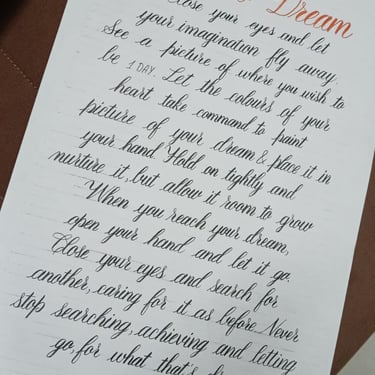 Dream
Close your eyes and let
your imagination fly away.
See a picture of where you wish to
be 1 DAY. Let the colours of your
heart take command to paint
picture of your dream & place it in
your hand. Hold on tightly and
nurture it, but allow it room to grow
When you reach your dream,
open your hand and let it go.
Close your eyes and search for
another, caring for it as before Never
stop searching, achieving and letting
go, for what that's